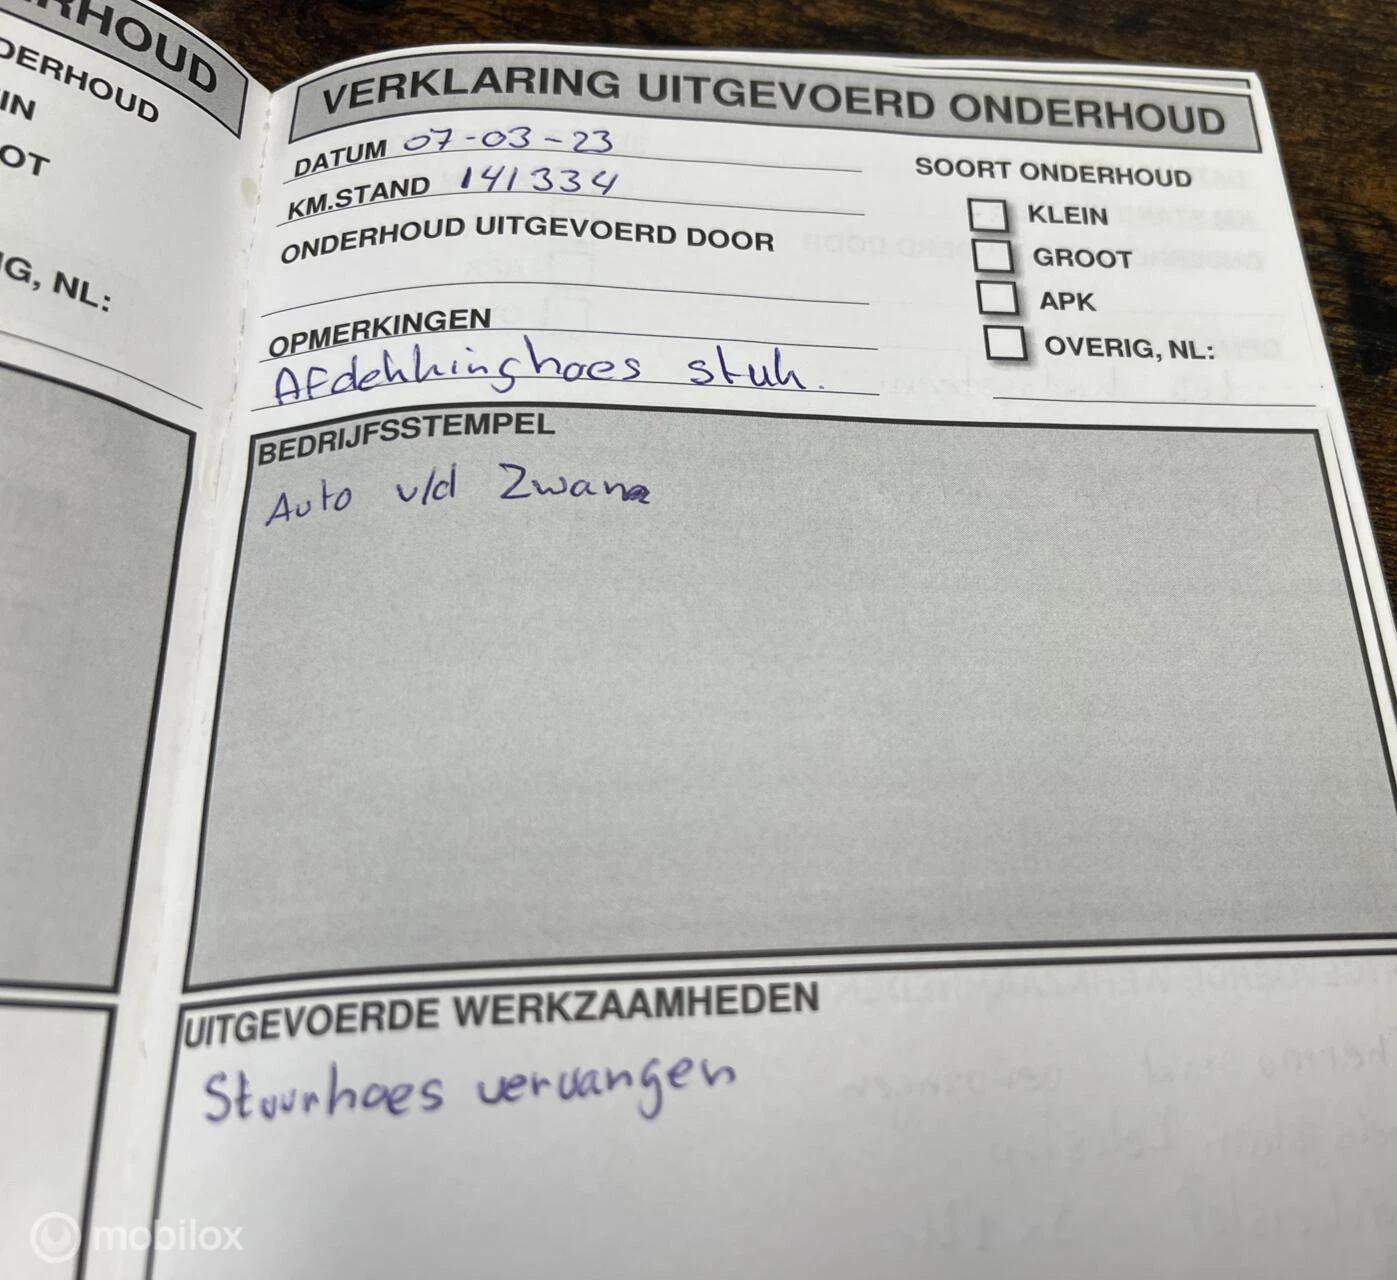 RHOUD
DERHOUD
IN
OT
IG, NL:
VERKLARING UITGEVOERD ONDERHOUD
DATUM 07-03-23
KM.STAND 141334
ONDERHOUD UITGEVOERD DOOR
OPMERKINGEN
Afdekkinghoes stuk.
SOORT ONDERHOUD
KLEIN
GROOT
APK
OVERIG, NL:
BEDRIJFSSTEMPEL
Auto v/d Zwan
UITGEVOERDE WERKZAAMHEDEN
Stuurhoes vervangen
mobilox